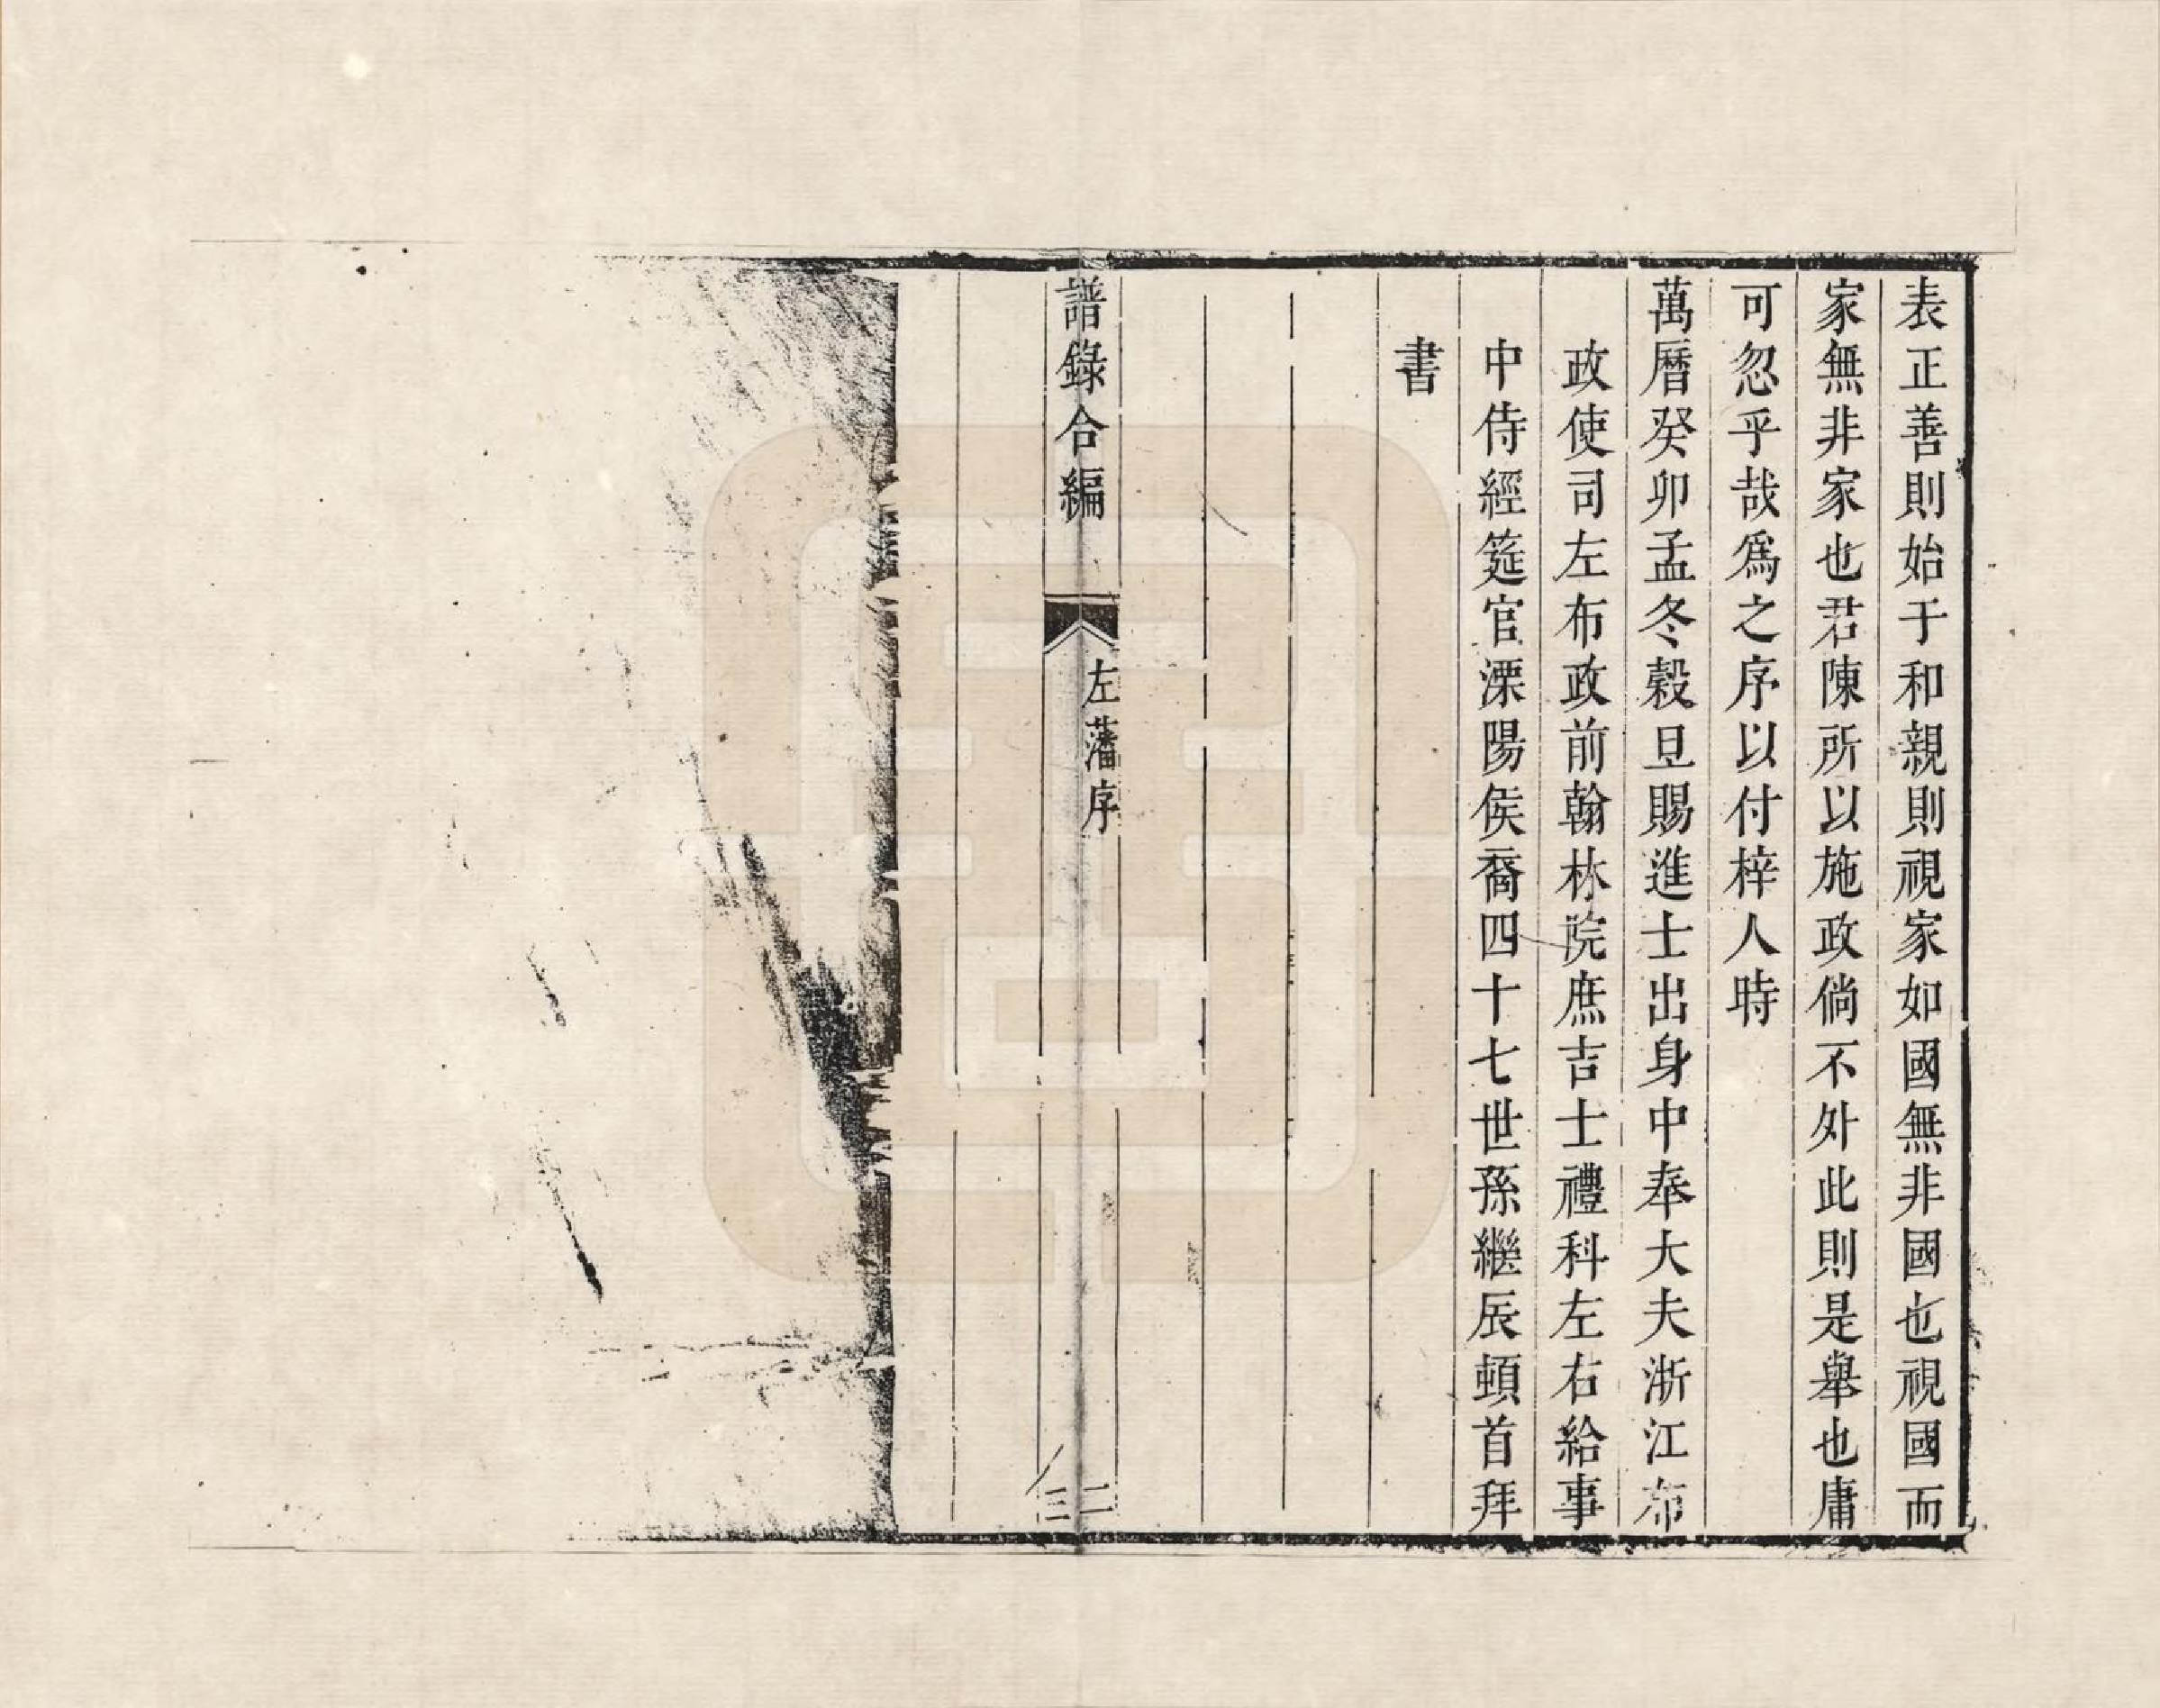 表正善則始于和親則視家如國無非國也視國而
家無非家也君陳所以施政倘不外此則是舉也庸
可忽乎哉爲之序以付梓人時
萬曆癸卯孟冬穀旦賜進士出身中奉大夫浙江布
政使司左布政前翰林院庶吉士禮科左右給事
中侍經筵官溧陽侯裔四十七世孫繼辰頓首拜
書
譜錄合編
左藩序